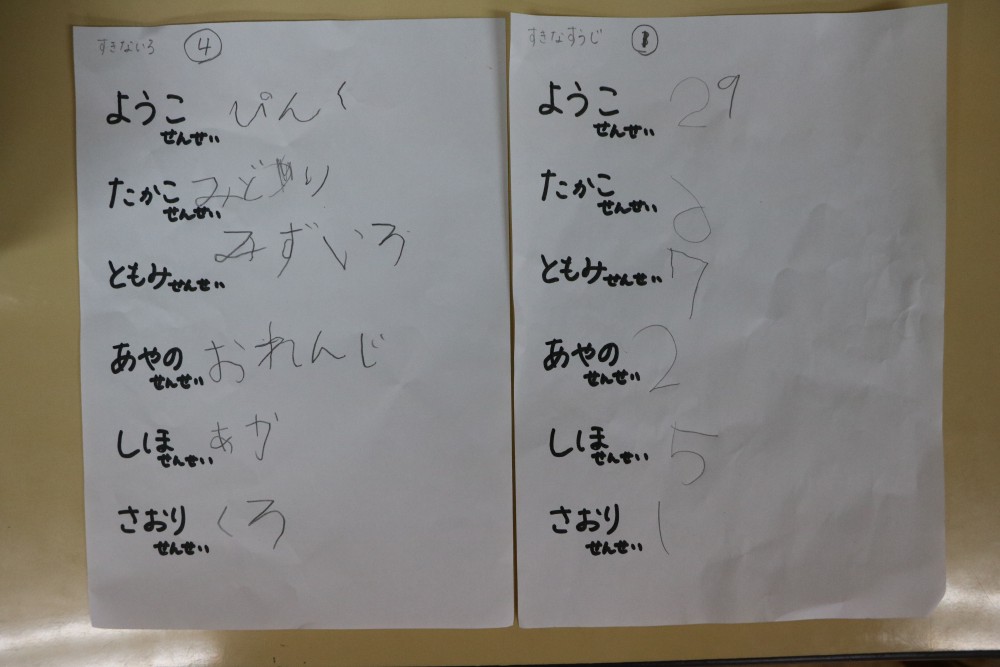 すきないろ ④
ようこ せんせい ぴんく
たかこ せんせい みどり
ともみ せんせい みずいろ
あやの せんせい おれんじ
しほ せんせい あか
さおり せんせい くろ
すきなすうじ
ようこ せんせい 29
たかこ せんせい
ともみ せんせい 7
あやの せんせい 2
しほ せんせい 5
さおり せんせい 1